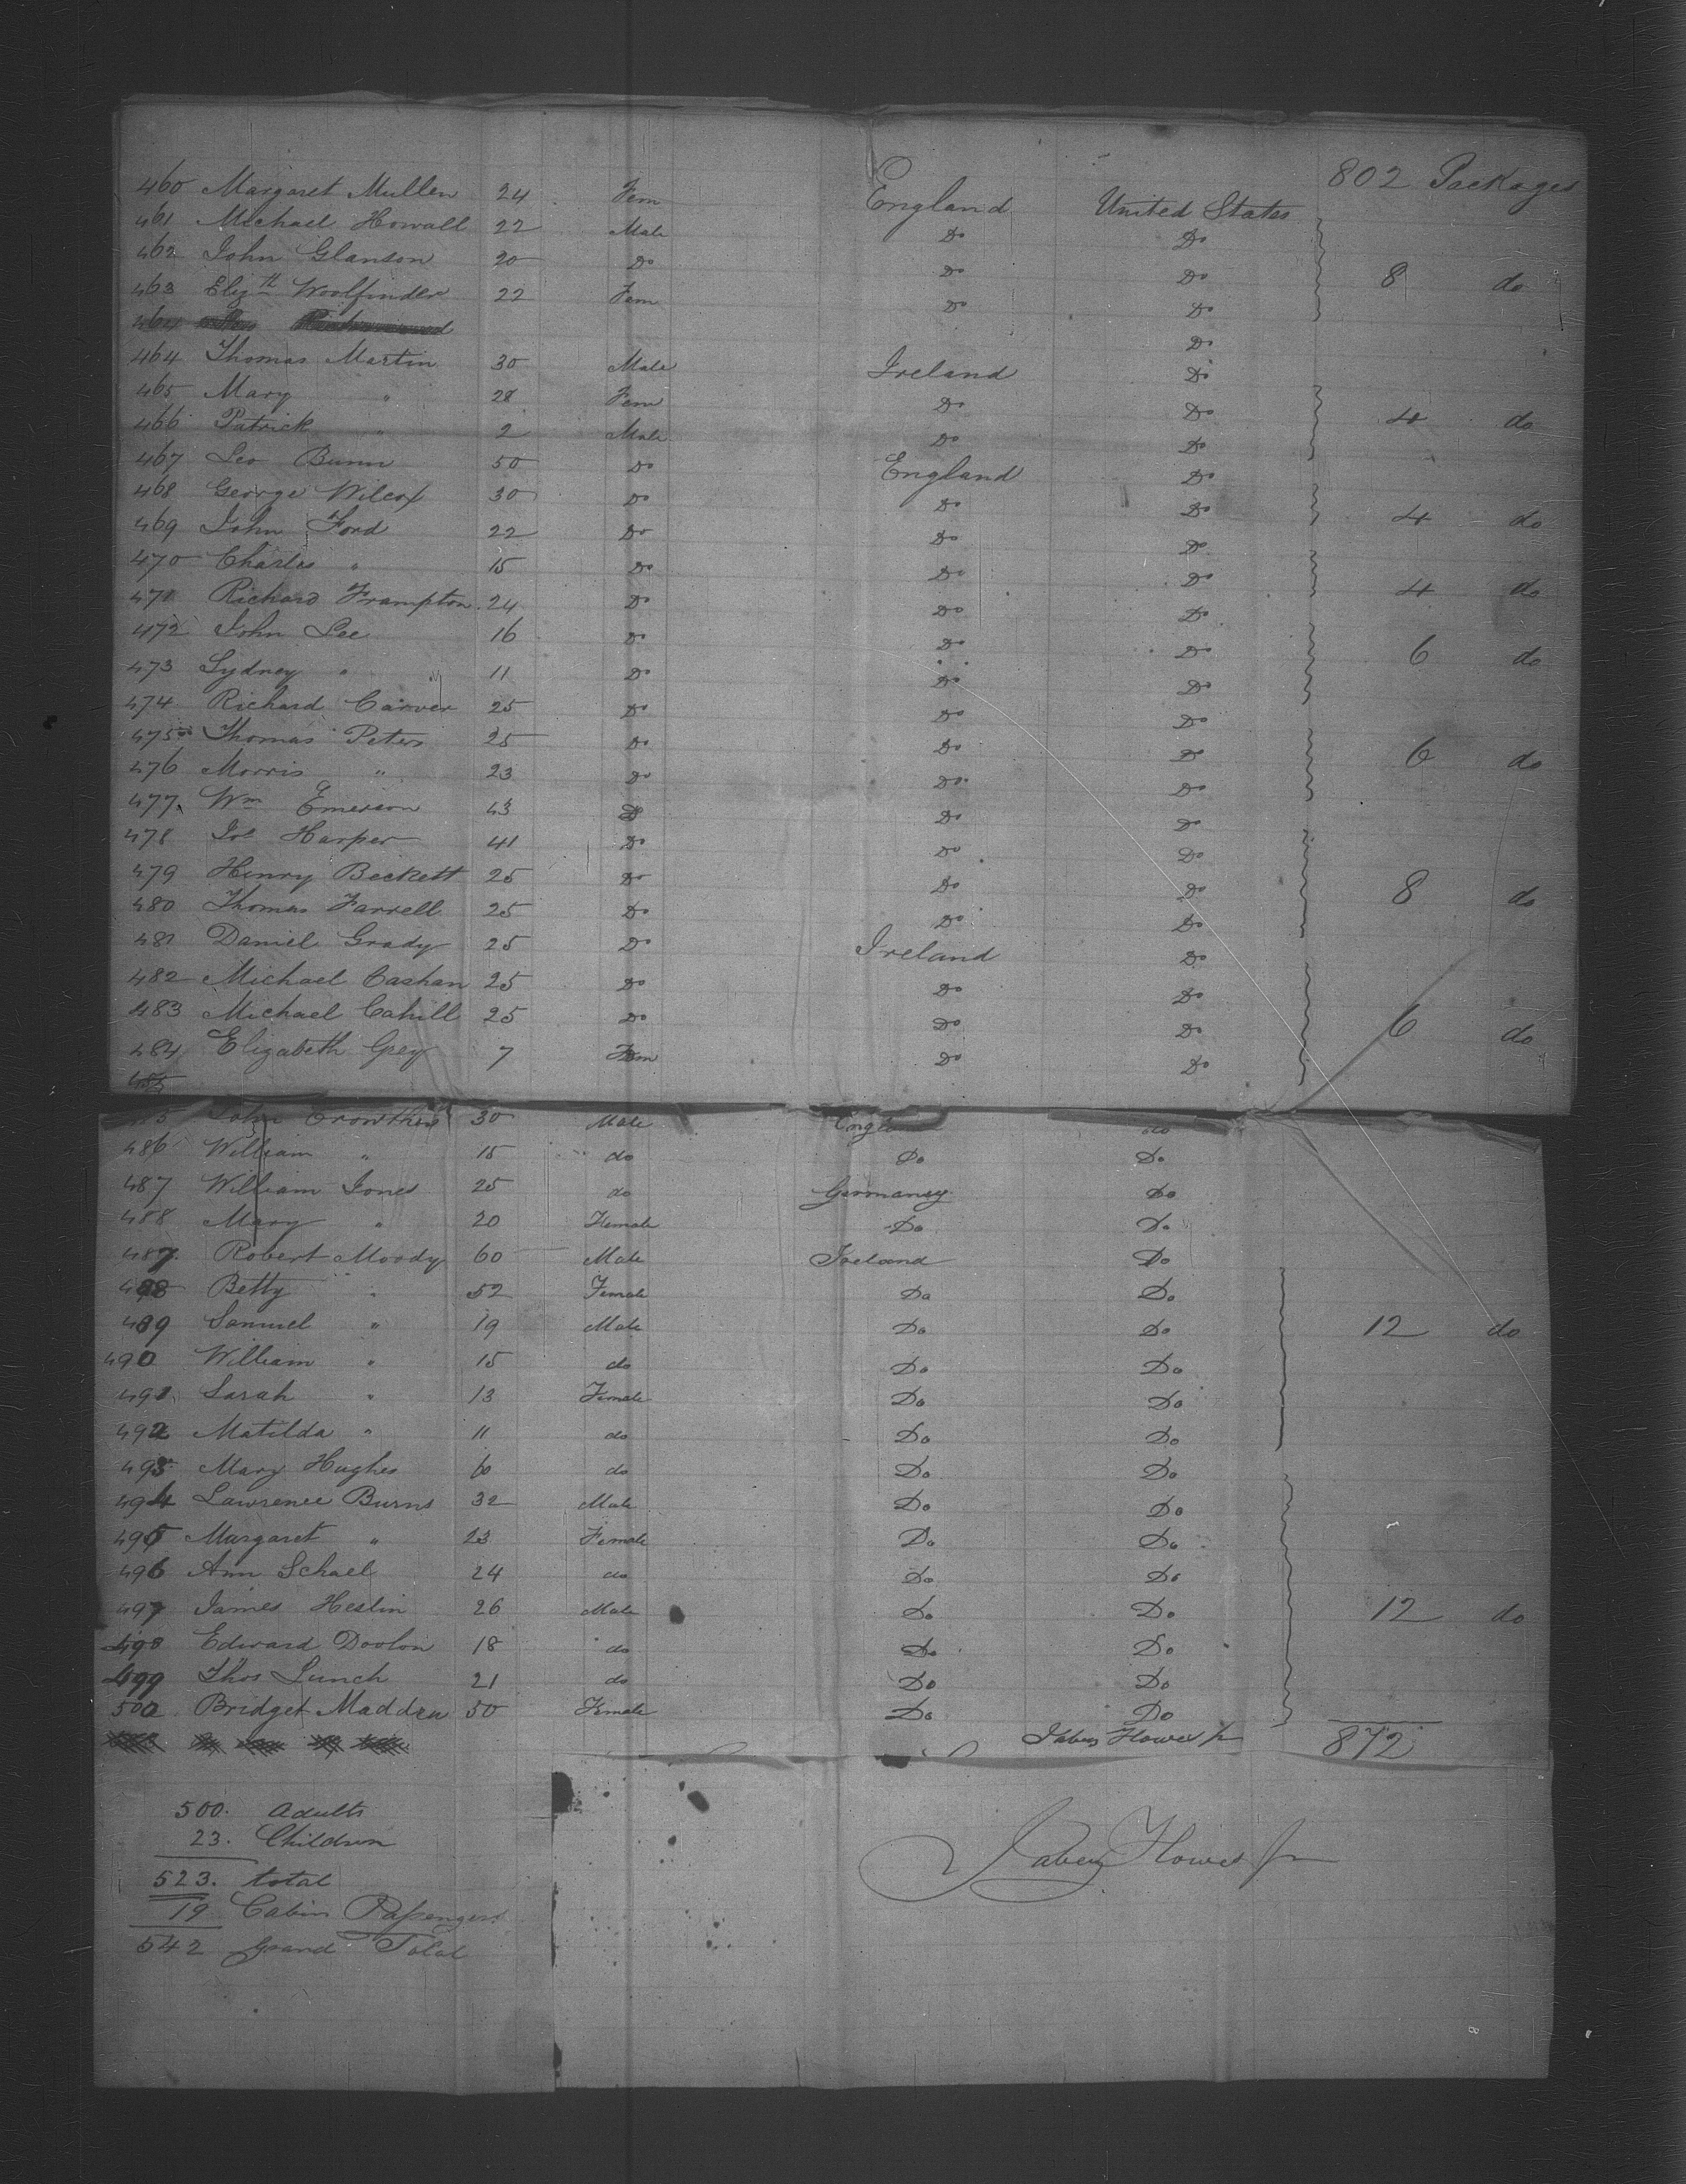 802 Packages
460 Margaret Mullen 24 Fem England United States
461 Michael Howall 22 Male Do Do
462 John Glanson 20 Do Do Do 8 do
463 Eliz th Woolfinder 22 Fem Do Do
Do
464 Thomas Martin 30 Male Ireland Do
465 Mary " 28 Fem Do Do 4 do
466 Patrick " 2 Male Do Do
467 Leo Bunn 50 Do England Do
468 George Wilcox 30 Do Do Do 4 do
469 John Ford 22 Do Do Do
470 Charles " 15 Do Do Do 4 do
471 Richard Frampton 24 Do Do Do
472 John Lee 16 Do Do Do 6 do
473 Sydney " 11 Do Do Do
474 Richard Carver 25 Do Do Do
475 Thomas Peters 25 Do Do Do 6 do
476 Morris " 23 Do Do Do
477 Wm Emerson 43 Do Do Do
478 Jos Harper 41 Do Do Do
479 Henry Beckett 25 Do Do Do 8 do
480 Thomas Farrell 25 Do Do Do
481 Daniel Grady 25 Do Ireland Do
482 Michael Cashan 25 Do Do Do
483 Michael Cahill 25 Do Do Do 6 do
484 Elizabeth Grey 7 Fem Do Do
485
John Crowther 30 Male do
486 William " 15 do Do Do
487 William Jones 25 do Germaney Do
488 Mary " 20 Female Do Do
487 Robert Moody 60 Male Ireland Do
488 Betty " 52 Female Do Do
489 Samuel " 19 Male Do Do 12 do
490 William " 15 do Do Do
491 Sarah " 13 Female Do Do
492 Matilda " 11 do Do Do
493 Mary Hughes 60 do Do Do
494 Lawrence Burns 32 Male Do Do
495 Margaret " 23 Female Do Do
496 Ann Schael 24 do Do Do
497 James Heslin 26 Male Do Do 12 do
498 Edward Doolon 18 do Do Do
499 Thos Lunch 21 do Do Do
500 Bridget Madden 50 Female Do Do
Jabez Howes Jr 872
500. Adults
23. Children
523. total
19 Cabin Passengers
542 Grand Total
Jabez Howes Jr